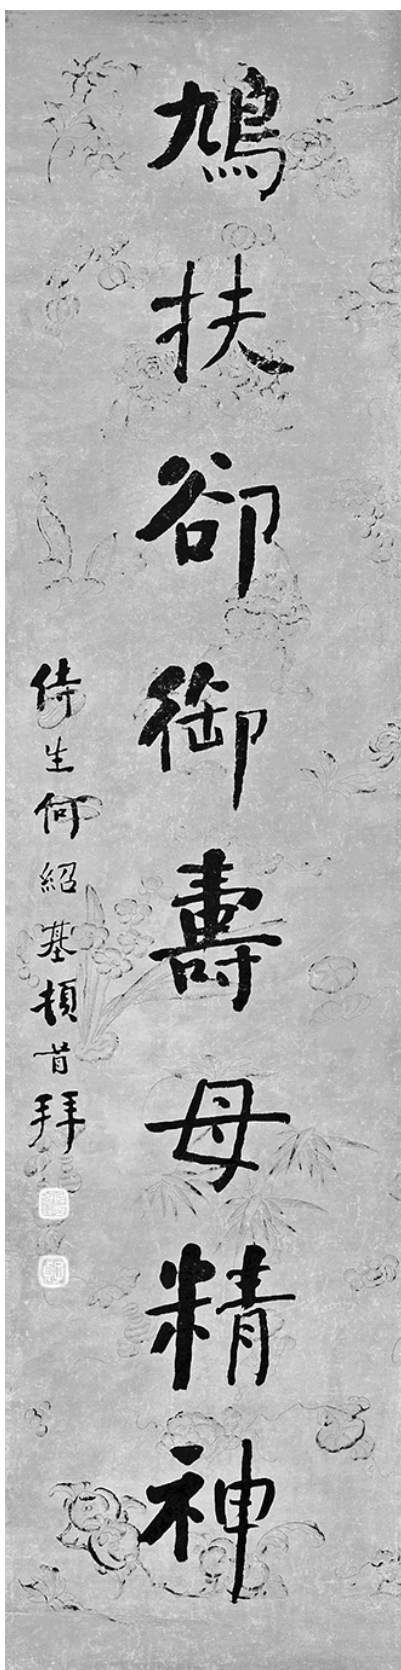 鳩扶卻御壽母精神
侍生何紹基頓首拜